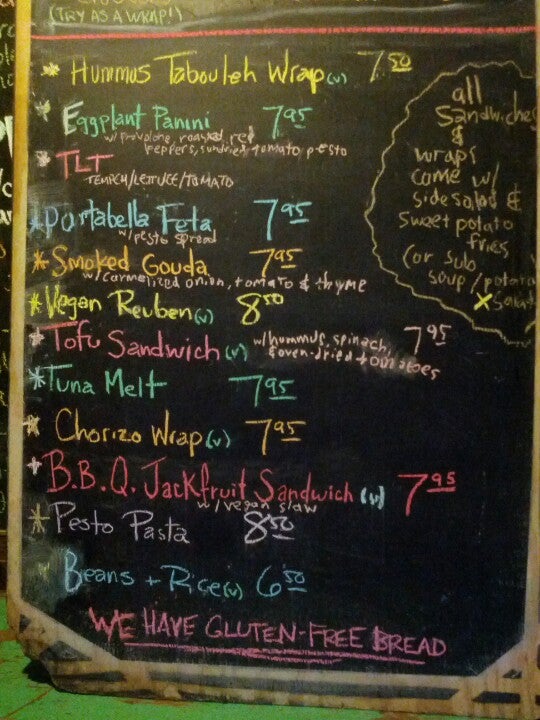 (TRY AS A WRAP!)
* Hummus Tabouleh Wrap (v) 7.50
* Eggplant Panini 7.95
w/ provolone, roasted red
peppers, sundried tomato pesto
* TLT
TEMPEH/LETTUCE/TOMATO
* Portabella Feta 7.95
w/pesto spread
* Smoked Gouda 7.95
w/ carmelized onion, tomato & thyme
* Vegan Reuben (v) 8.50
* Tofu Sandwich (v) w/hummus, spinach, 7.95
& oven-dried tomatoes
* Tuna Melt 7.95
* Chorizo Wrap (v) 7.95
* B.B.Q. Jackfruit Sandwich (v) 7.95
w/vegan slaw
* Pesto Pasta 8.50
Beans + Rice (v) 6.50
WE HAVE GLUTEN-FREE BREAD
all
sandwiches
&
wraps
come w/
side salad &
sweet potato
fries
(or sub
soup/potato
salad